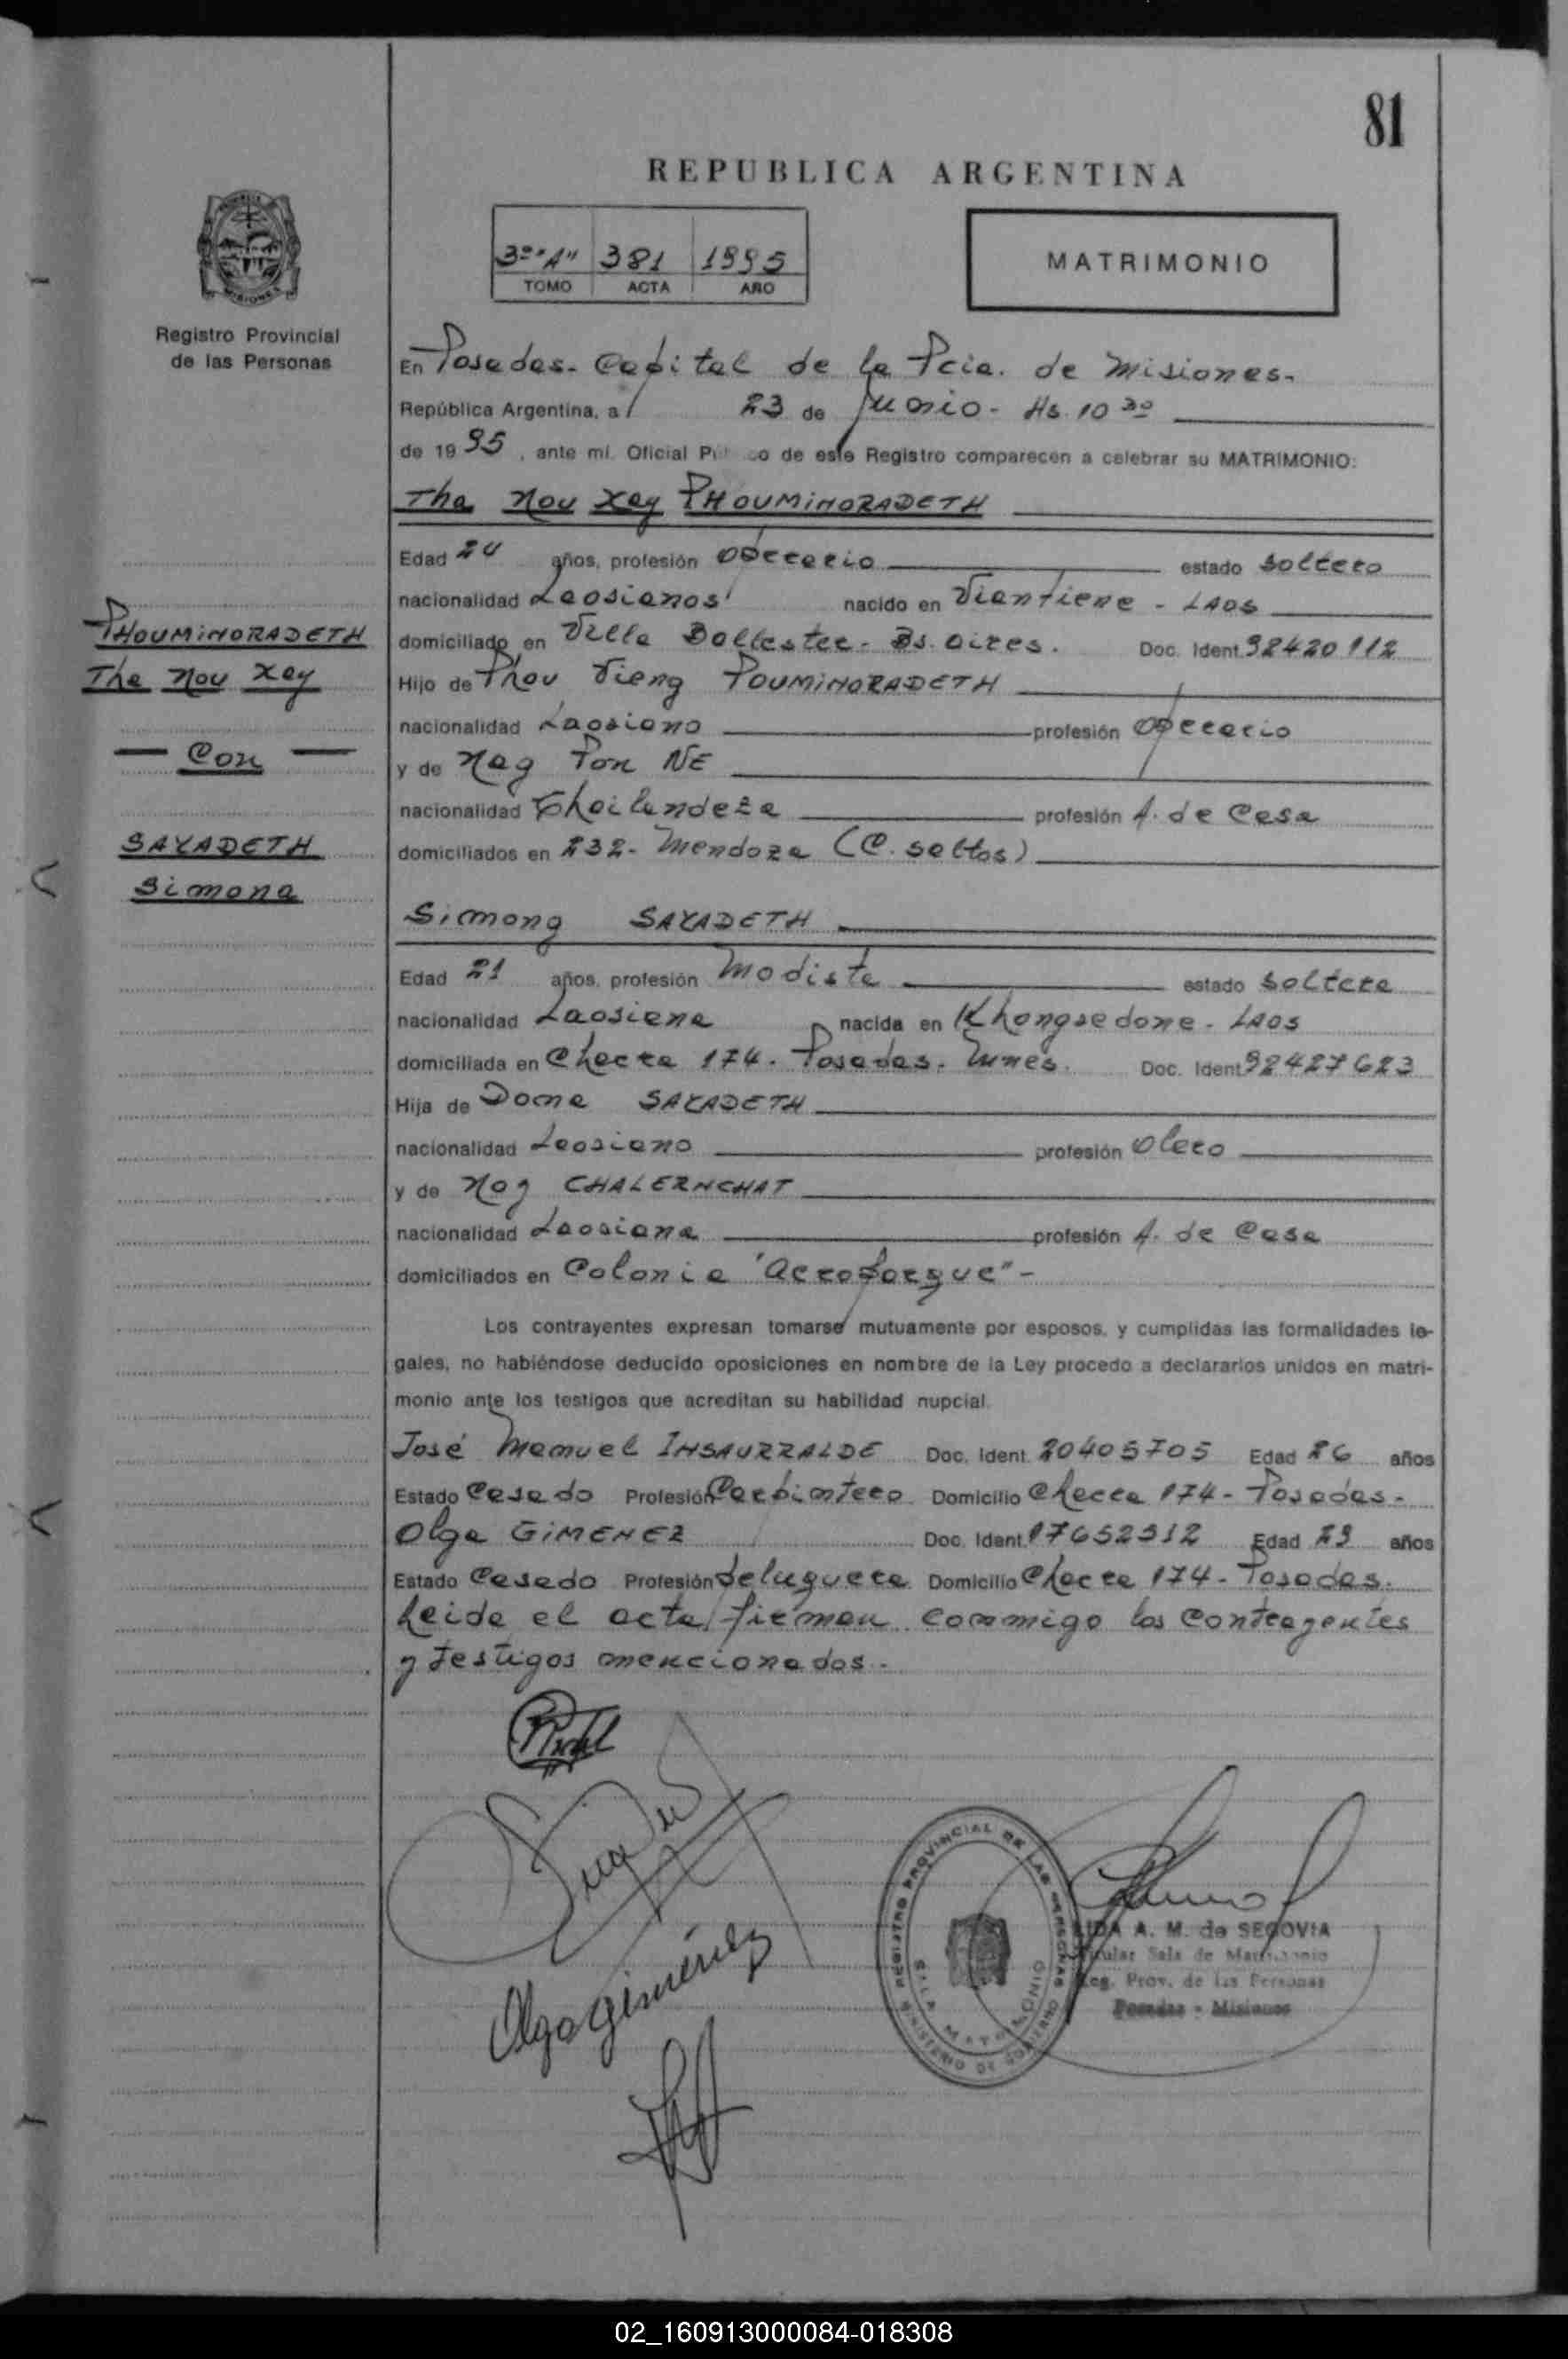 81
REPUBLICA ARGENTINA
3º "A" 381 1995
TOMO ACTA AÑO
MATRIMONIO
Registro Provincial
de las Personas
En Posadas - Capital de la Pcia. de Misiones -
República Argentina, a 23 de Junio - Hs. 10 30
de 1995, ante mí, Oficial Público de este Registro comparecen a celebrar su MATRIMONIO:
Tha Nou Xay PHOUMINORADETH
Edad 24 años, profesión operario estado soltero
nacionalidad Laosianos nacido en Vientiene - LAOS
domiciliado en Villa Ballester - Bs. Aires. Doc. Ident. 92420112
Hijo de Phou Vieng POUMINORADETH
nacionalidad Laosiano profesión operario
y de Nag Pon NE
nacionalidad Thailandeza profesión A. de Casa
domiciliados en 232 - Mendoza (C. saltos)
PHOUMINORADETH
Tha Nou Xay
Con
SAYADETH
Simona
Simong SAYADETH
Edad 21 años, profesión Modista estado soltera
nacionalidad Laosiana nacida en Khongsedone - LAOS
domiciliada en Checra 174 - Posadas - Mnes. Doc. Ident. 92427623
Hija de Doma SAYADETH
nacionalidad Laosiano profesión Olero
y de Noy CHALERNCHAT
nacionalidad Laosiana profesión A. de Casa
domiciliados en Colonia "Aeroparque" -
Los contrayentes expresan tomarse mutuamente por esposos, y cumplidas las formalidades le-
gales, no habiéndose deducido oposiciones en nombre de la Ley procedo a declararlos unidos en matri-
monio ante los testigos que acreditan su habilidad nupcial.
José Manuel INSAURRALDE Doc. Ident. 20405705 Edad 26 años
Estado Casado Profesión Carpintero Domicilio Checra 174 - Posadas -
Olga GIMENEZ Doc. Ident. 17652312 Edad 29 años
Estado Casado Profesión peluquera Domicilio Checra 174 - Posadas.
Leida el acta firman conmigo los contrayentes
y testigos mencionados -
Olga Giménez
REGISTRO PROVINCIAL DE LAS PERSONAS
SALA MATRIMONIO
MINISTERIO DE GOBIERNO
A. M. de SEGOVIA
Titular Sala de Matrimonio
Reg. Prov. de las Personas
Posadas - Misiones
02_160913000084-018308